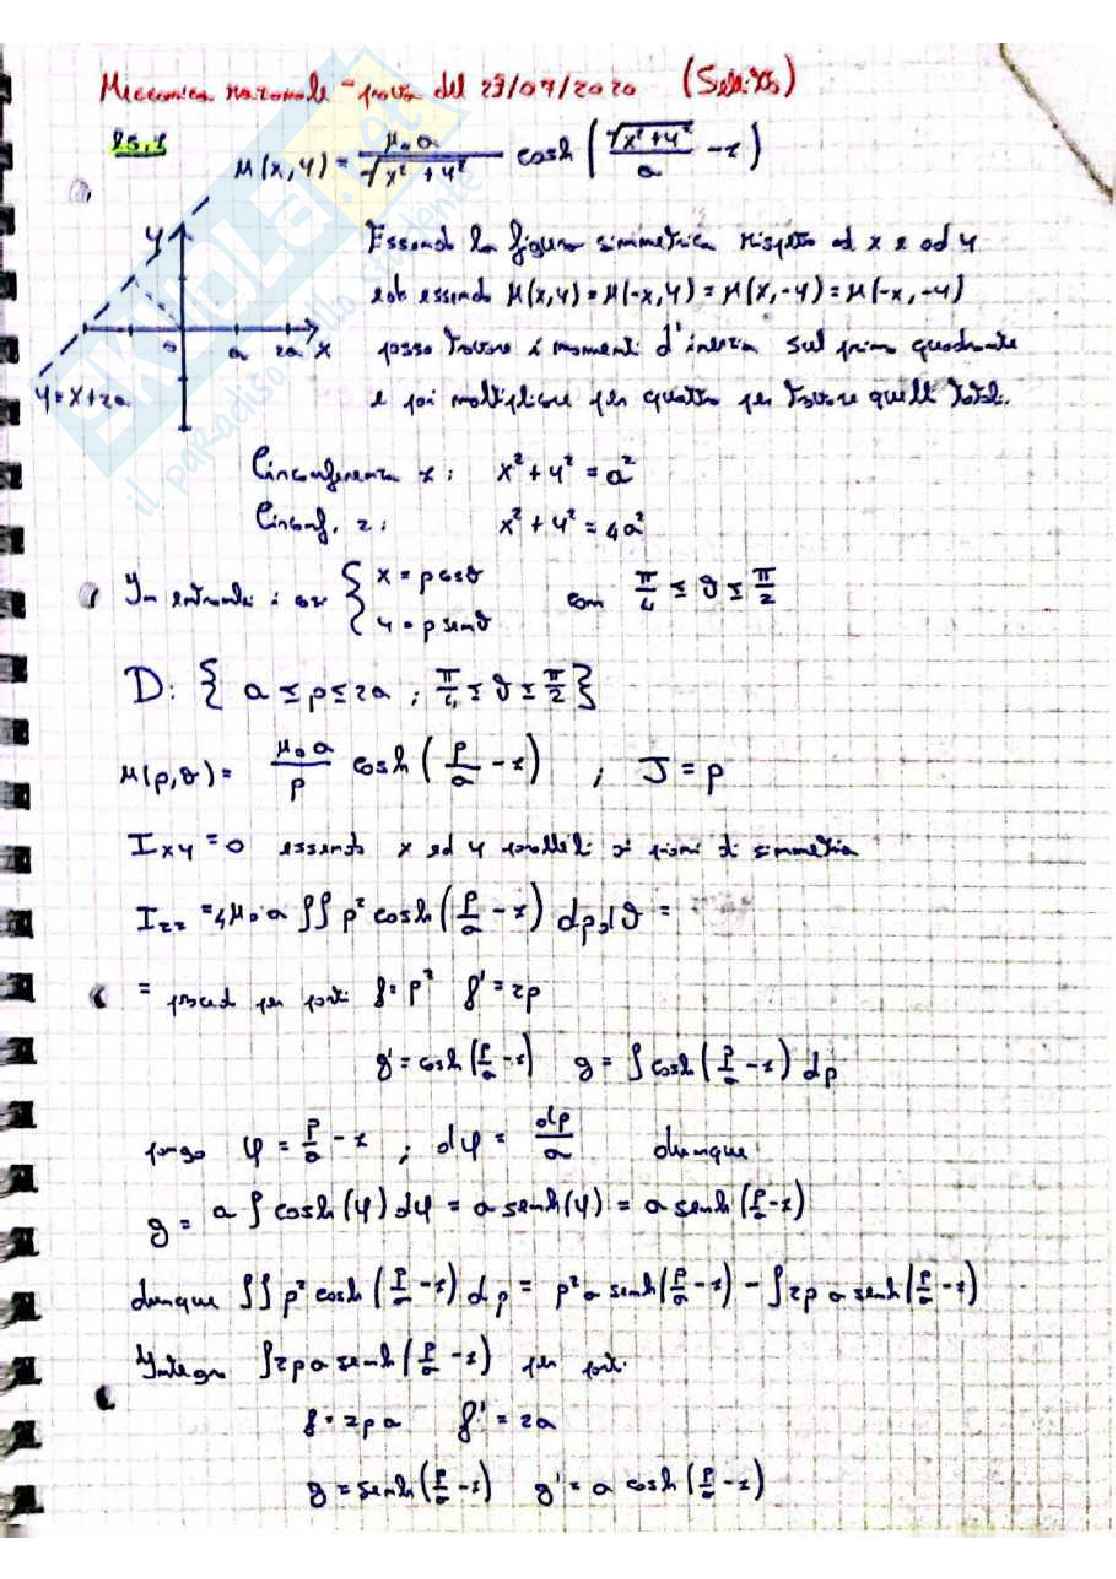 Meccanica razionale - prova del 23/07/2020 (Sela:35)
Es. 1 μ(x,y) = μ₀a/√(x²+y²) cosh(√(x²+y²)/a - 1)
y Essendo la figura simmetrica rispetto ad x e ad y
ed essendo μ(x,y) = μ(-x,y) = μ(x,-y) = μ(-x,-y)
o a 2a x posso trovare i momenti d'inerzia sul primo quadrante
y=x+2a e poi moltiplicare per quattro per trovare quelli totali.
Circonferenza 1: x²+y² = a²
Circonf. 2: x²+y² = 4a²
In entrambi i casi { x = ρcosθ y = ρsenθ con π/4 ≤ θ ≤ π/2
D: { a ≤ ρ ≤ 2a ; π/4 ≤ θ ≤ π/2 }
μ(ρ,θ) = μ₀a/ρ cosh(ρ/a - 1) ; J = ρ
Ixy = 0 essendo x ed y paralleli ai piani di simmetria
Izz = 4μ₀a ∫∫ ρ² cosh(ρ/a - 1) dρdθ =
= proced per parti f = ρ² f' = 2ρ
g' = cosh(ρ/a - 1) g = ∫cosh(ρ/a - 1) dρ
pongo φ = ρ/a - 1 ; dφ = dρ/a dunque
g = a∫cosh(φ)dφ = a senh(φ) = a senh(ρ/a - 1)
dunque ∫∫ρ² cosh(ρ/a - 1) dρ = ρ² a senh(ρ/a - 1) - ∫2ρ a senh(ρ/a - 1)
Integro ∫2ρ a senh(ρ/a - 1) per parti
f = 2ρa f' = 2a
g = senh(ρ/a - 1) g' = a cosh(ρ/a - 1)
SKUOLa.net
il paradiso dello studente